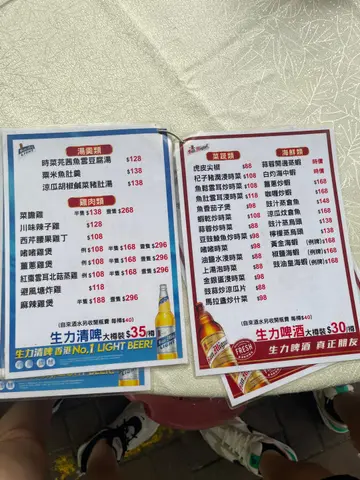 湯羹類
時菜芫茜魚雲豆腐湯 $128
粟米魚肚羹 $138
涼瓜胡椒鹹菜豬肚湯 $138
雞肉類
菜膽雞 半隻$138 壹隻$268
川味辣子雞 $128
西芹腰果雞丁 $108
啫啫雞煲 例$108 半隻$168 壹隻$296
薑蔥雞煲 例$108 半隻$168 壹隻$296
紅棗雲耳北菇蒸雞 例$108 半隻$168 壹隻$296
避風塘炸雞 $118
麻辣雞煲 半隻$188 壹隻$296
(自來酒水另收開瓶費 每樽$40)
生力清啤 大樽裝 $35/樽
生力清啤 香港No.1 LIGHT BEER!
San Miguel
菜蔬類
虎皮尖椒 $88
杞子雜菌浸時菜 $108
魚鬆雲耳炒時菜 $108
魚肚雲耳浸時菜 $118
魚香茄子煲 $98
蝦乾炒時菜 $98
蒜蓉炒時菜 $88
豆豉鯪魚炒時菜 $98
啫啫時菜 $98
油鹽水浸時菜 $98
上湯泡時菜 $98
金銀蛋浸時菜 $98
豉蒜炒涼瓜 $88
馬拉盞炒什菜 $98
海鮮類
蒜蓉開邊蒸蝦 時價
白灼海中蝦 時價
薑蔥炒蜆 $168
咖喱炒蜆 $168
豉汁蒸倉魚 $138
涼瓜炆倉魚 $168
豉汁蒸烏頭 $138
檸檬蒸烏頭 $138
黃金海蝦 (例牌)$168
椒鹽海蝦 (例牌)$168
豉油皇海蝦 (例牌)$168
(自來酒水另收開瓶費 每樽$40)
生力啤酒 大樽裝 $30/樽
FRESH
生力啤酒 真正朋友